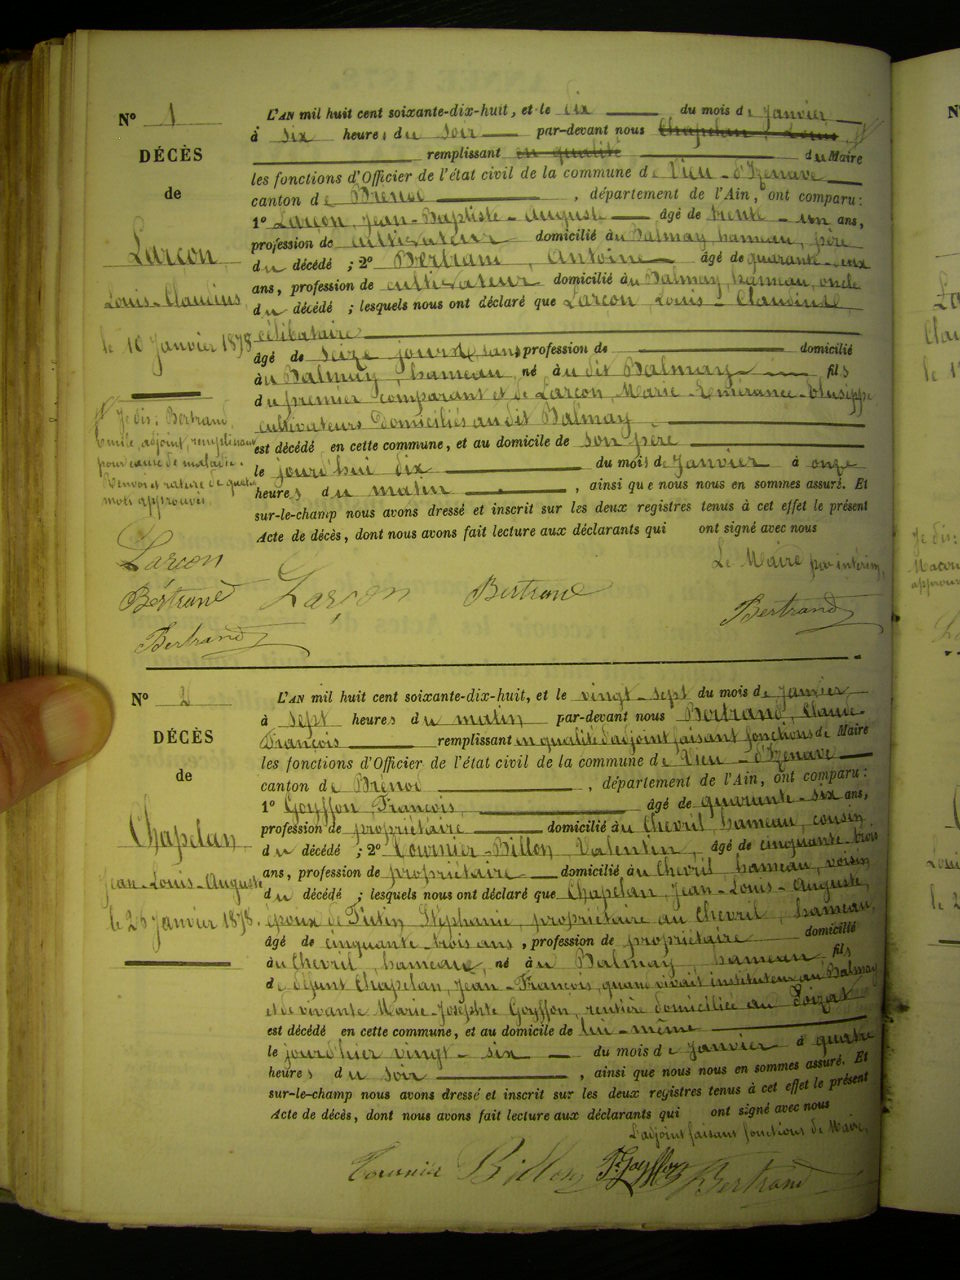 N° 1
DÉCÈS
de
Larçon
Louis-Claudius
le 10 Janvier 1878
L'AN mil huit cent soixante-dix-huit, et le dix du mois de Janvier
à six heures du soir par-devant nous Chapelan, Louis
remplissant en qualité du Maire
les fonctions d'Officier de l'état civil de la commune de Vieu-d'Izenave
canton de Brenod, département de l'Ain, ont comparu:
1° Larçon, Jean-Baptiste-Auguste âgé de trente-un ans,
profession de cultivateur domicilié à Balmay hameau, père
du décédé; 2° Bertrand, Antoine âgé de quarante-
ans, profession de cultivateur domicilié à Balmay, hameau, oncle
du décédé; lesquels nous ont déclaré que Larçon Louis-Claudius
célibataire
âgé de seize jours profession de domicilié
à Balmay, hameau, né à dit Balmay fils
du premier comparant et de Larçon, Marie
cultivateurs domiciliés au dit Balmay
est décédé en cette commune, et au domicile de son père
le jourd'hui dix du mois de Janvier à onze
heures du matin, ainsi que nous nous en sommes assuré. Et
sur-le-champ nous avons dressé et inscrit sur les deux registres tenus à cet effet le présent
Acte de décès, dont nous avons fait lecture aux déclarants qui ont signé avec nous
Je dis: Bertrand
adjoint, remplissant
pour cause de maladie.
Renvoi et rature de quatre
mots approuvés
Le Maire par intérim,
Larçon
Bertrand Larçon Bertrand Bertrand
Bertrand
N° 2
DÉCÈS
de
Chapelan
Jean-Louis-Auguste
le 26 Janvier 1878.
L'AN mil huit cent soixante-dix-huit, et le vingt-sept du mois de Janvier
à sept heures du matin par-devant nous Bertrand, Claude-
François remplissant en qualité d'adjoint faisant fonctions de Maire
les fonctions d'Officier de l'état civil de la commune de Vieu-d'Izenave
canton de Brenod, département de l'Ain, ont comparu:
1° Goyffon, François âgé de quarante-six ans,
profession de propriétaire domicilié à Chevril, hameau, cousin
du décédé; 2° Tournier-Billon Valentin, âgé de cinquante-trois
ans, profession de propriétaire domicilié à Chevril hameau, voisin
du décédé; lesquels nous ont déclaré que Chapelan, Jean-Louis-Auguste,
époux de Tutin Stéphanie, propriétaire au Chevril, hameau,
âgé de cinquante-trois ans, profession de propriétaire domicilié
à Chevril, hameau, né à Balmay, hameau, fils
de défunt Chapelan, Jean-François, quand vivait instituteur au Balmay
et de vivante Marie-Josephte Goyffon, rentière domiciliée au Poizat
est décédé en cette commune, et au domicile de lui-même
le jourd'hier vingt-six du mois de Janvier à quatre
heures du soir, ainsi que nous nous en sommes assuré. Et
sur-le-champ nous avons dressé et inscrit sur les deux registres tenus à cet effet le présent
Acte de décès, dont nous avons fait lecture aux déclarants qui ont signé avec nous
L'adjoint faisant fonctions de Maire,
Tournier Billon F. Goyffon Bertrand